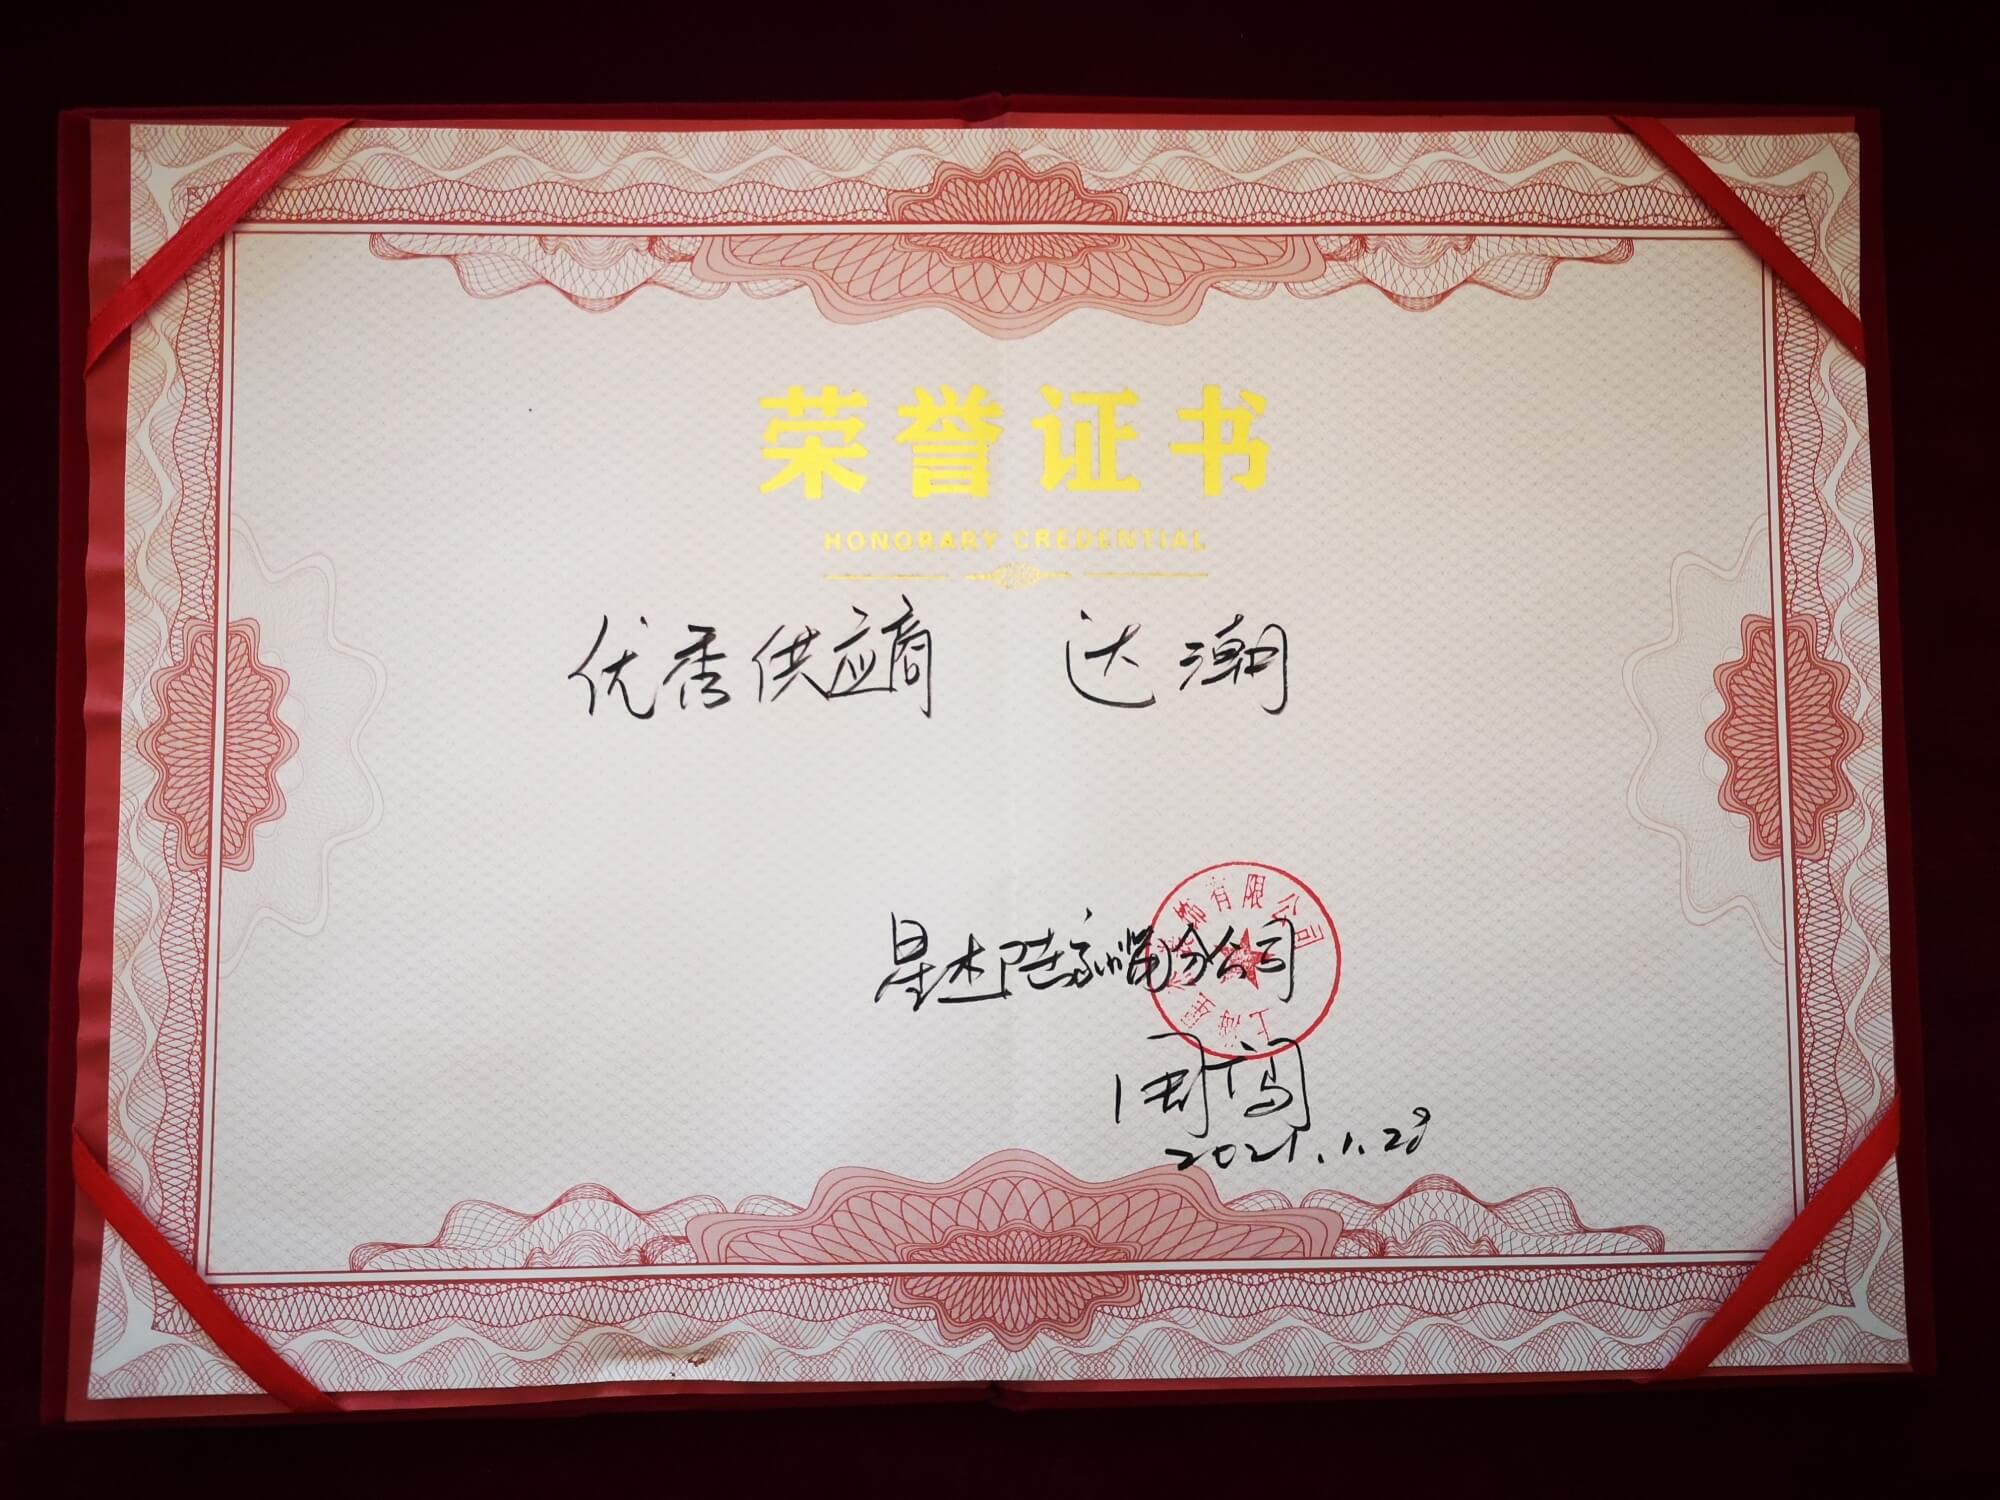 荣誉证书
HONORARY CREDENTIAL
优秀供应商 达潮
星杰陆家嘴分公司
2021.1.28